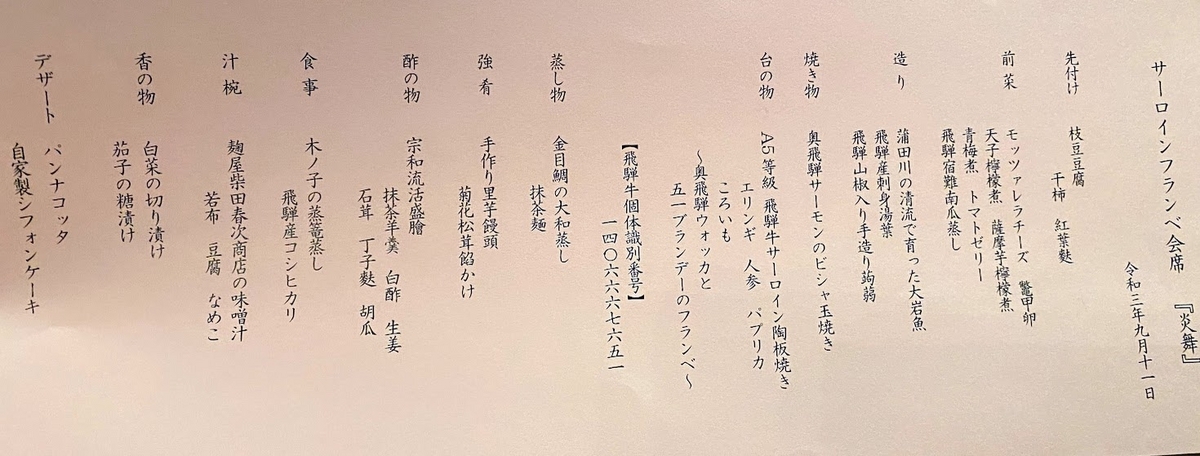 サーロインフランベ会席 『炎舞』
令和三年九月十一日
先付け 枝豆豆腐
干柿 紅葉麩
前菜 モッツァレラチーズ 鼈甲卵
天子檸檬煮 薩摩芋檸檬煮
青梅煮 トマトゼリー
飛騨宿儺南瓜蒸し
造り 蒲田川の清流で育った大岩魚
飛騨産刺身湯葉
飛騨山椒入り手造り蒟蒻
焼き物 奥飛騨サーモンのビシャ玉焼き
台の物 A5等級 飛騨牛サーロイン陶板焼き
エリンギ 人参 パプリカ
ころいも
～奥飛騨ウォッカと
五一ブランデーのフランベ～
【飛騨牛個体識別番号】
一四〇六六六七六五一
蒸し物 金目鯛の大和蒸し
抹茶麺
強肴 手作り里芋饅頭
菊花松茸餡かけ
酢の物 宗和流活盛膾
抹茶羊羹 白酢 生姜
石茸 丁子麩 胡瓜
食事 木ノ子の蒸篭蒸し
飛騨産コシヒカリ
汁椀 麹屋柴田春次商店の味噌汁
若布 豆腐 なめこ
香の物 白菜の切り漬け
茄子の糠漬け
デザート パンナコッタ
自家製シフォンケーキ